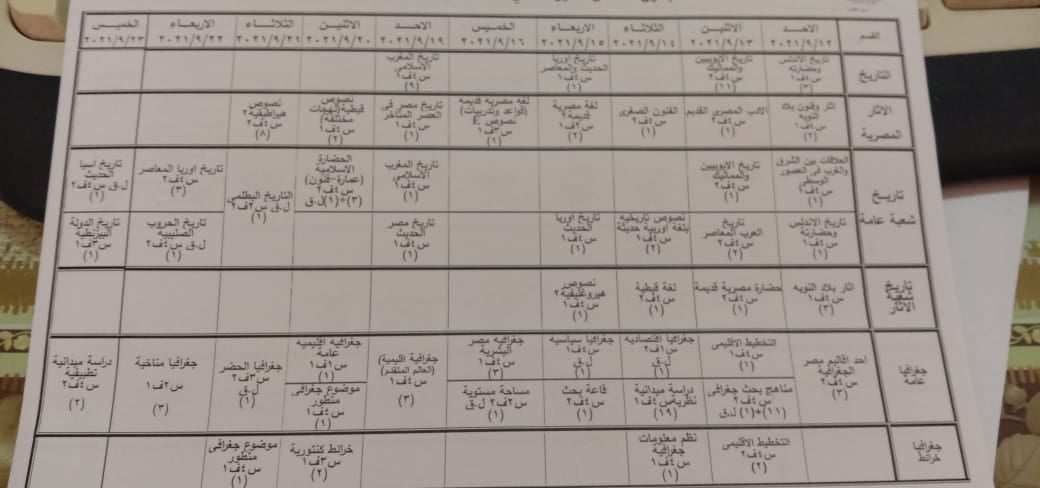 القسم
الاحد
٢٠٢١/٩/١٢
الاثنين
٢٠٢١/٩/١٣
الثلاثاء
٢٠٢١/٩/١٤
الاربعاء
٢٠٢١/٩/١٥
الخميس
٢٠٢١/٩/١٦
الاحد
٢٠٢١/٩/١٩
الاثنين
٢٠٢١/٩/٢٠
الثلاثاء
٢٠٢١/٩/٢١
الاربعاء
٢٠٢١/٩/٢٢
الخميس
٢٠٢١/٩/٢٣
التاريخ
تاريخ الاندلس
وحضارته
س٤ف١
(٣)
تاريخ الايوبيين
والمماليك
س٤ف٢
(١١)
تاريخ اوربا
الحديث والمعاصر
س٤ف١
(١)
تاريخ المغرب
الاسلامى
س٤ف١
(٩)
الاثار
المصرية
اثار وفنون بلاد
النوبه
س٤ف١
(٢)
الادب المصرى القديم
س٤ف٢
(١)
الفنون الصغرى
س٤ف٢
(١)
لغة مصرية
قديمة٢
س٢ف١
(٢)
لغه مصريه قديمه
(قواعد وتدريبات)
نصوص E
س٣ف١
(١)
تاريخ مصر فى
العصر المتاخر
س٤ف١
(١)
نصوص
قبطية(لهجات
مختلفة)
س٤ف١
(٢)
نصوص
هيراطيقية٢
س٤ف٢
(٨)
تاريخ
شعبة عامة
العلاقات بين الشرق
والغرب فى العصور
الوسطى
س٤ف١
(١)
تاريخ الايوبيين
والمماليك
س٤ف٢
(١)
تاريخ المغرب
الاسلامي
س٤ف١
(١)
الحضارة
الاسلامية
(عمارة-فنون)
س٤ف٢
(٣)+(١)ل.ق
التاريخ البطلمى
ل.ق س٢ف٢
(١)
تاريخ اوربا المعاصر
س٤ف٢
(٣)
تاريخ اسيا
الحديث
ل.ق س٤ف٢
(١)
تاريخ الاندلس
وحضارته
س٤ف١
(١)
تاريخ
العرب المعاصر
س٤ف٢
(٢)
نصوص تاريخيه
بلغة اوربية حديثة
س٤ف١
(٢)
تاريخ اوربا
الحديث
س٤ف١
(١)
تاريخ مصر
الحديث
س٤ف١
(١)
تاريخ الحروب
الصليبية
ل.ق س٤ف٢
(١)
تاريخ الدولة
البيزنطية
س٣ف١
(١)
تاريخ
شعبة
الاثار
اثار بلاد النوبه
س٤ف١
(٣)
حضارة مصرية قديمة
س٤ف٢
(١)
لغة قبطية
س٤ف٢
(١)
نصوص
هيروغليفية٢
س٤ف١
(١)
جغرافيا
عامة
احد اقاليم مصر
الجغرافية
س٤ف٢
(٣)
التخطيط الاقليمى
س٤ف١
(١)
جغرافيا اقتصاديه
س١ف٢
ل.ق
(١)
جغرافيا سياسية
س٤ف١
ل.ق
(١)
جغرافيه مصر
البشرية
س٤ف١
(٣)
جغرافية اقليمية)
(العالم المتقدم)
س٤ف١
(٣)
جغرافية اقليميه
عامة
س١ف١
(١)
جغرافيا الحضر
س٣ف٢
ل.ق
(١)
جغرافيا مناخية
س٢ف١
(٣)
دراسة ميدانية
تطبيقية
س٤ف٢
(٢)
مناهج بحث جغرافى
س٤ف٢
(١١)+(١) ل.ق
دراسة ميدانية
نظريةس٤ف١
(١٩)
قاعة بحث
س٤ف٢
(١)
مساحة مستوية
س٢ف٢ ل.ق
(١)
موضوع جغرافى
متطور
س٤ف١
(١)
جغرافيا
خرائط
التخطيط الاقليمى
س٤ف٢
(٢)
نظم معلومات
جغرافية
س٤ف١
(١)
خرائط كنتورية
س٣ف١
(٢)
موضوع جغرافى
متطور
س٤ف١
(١)